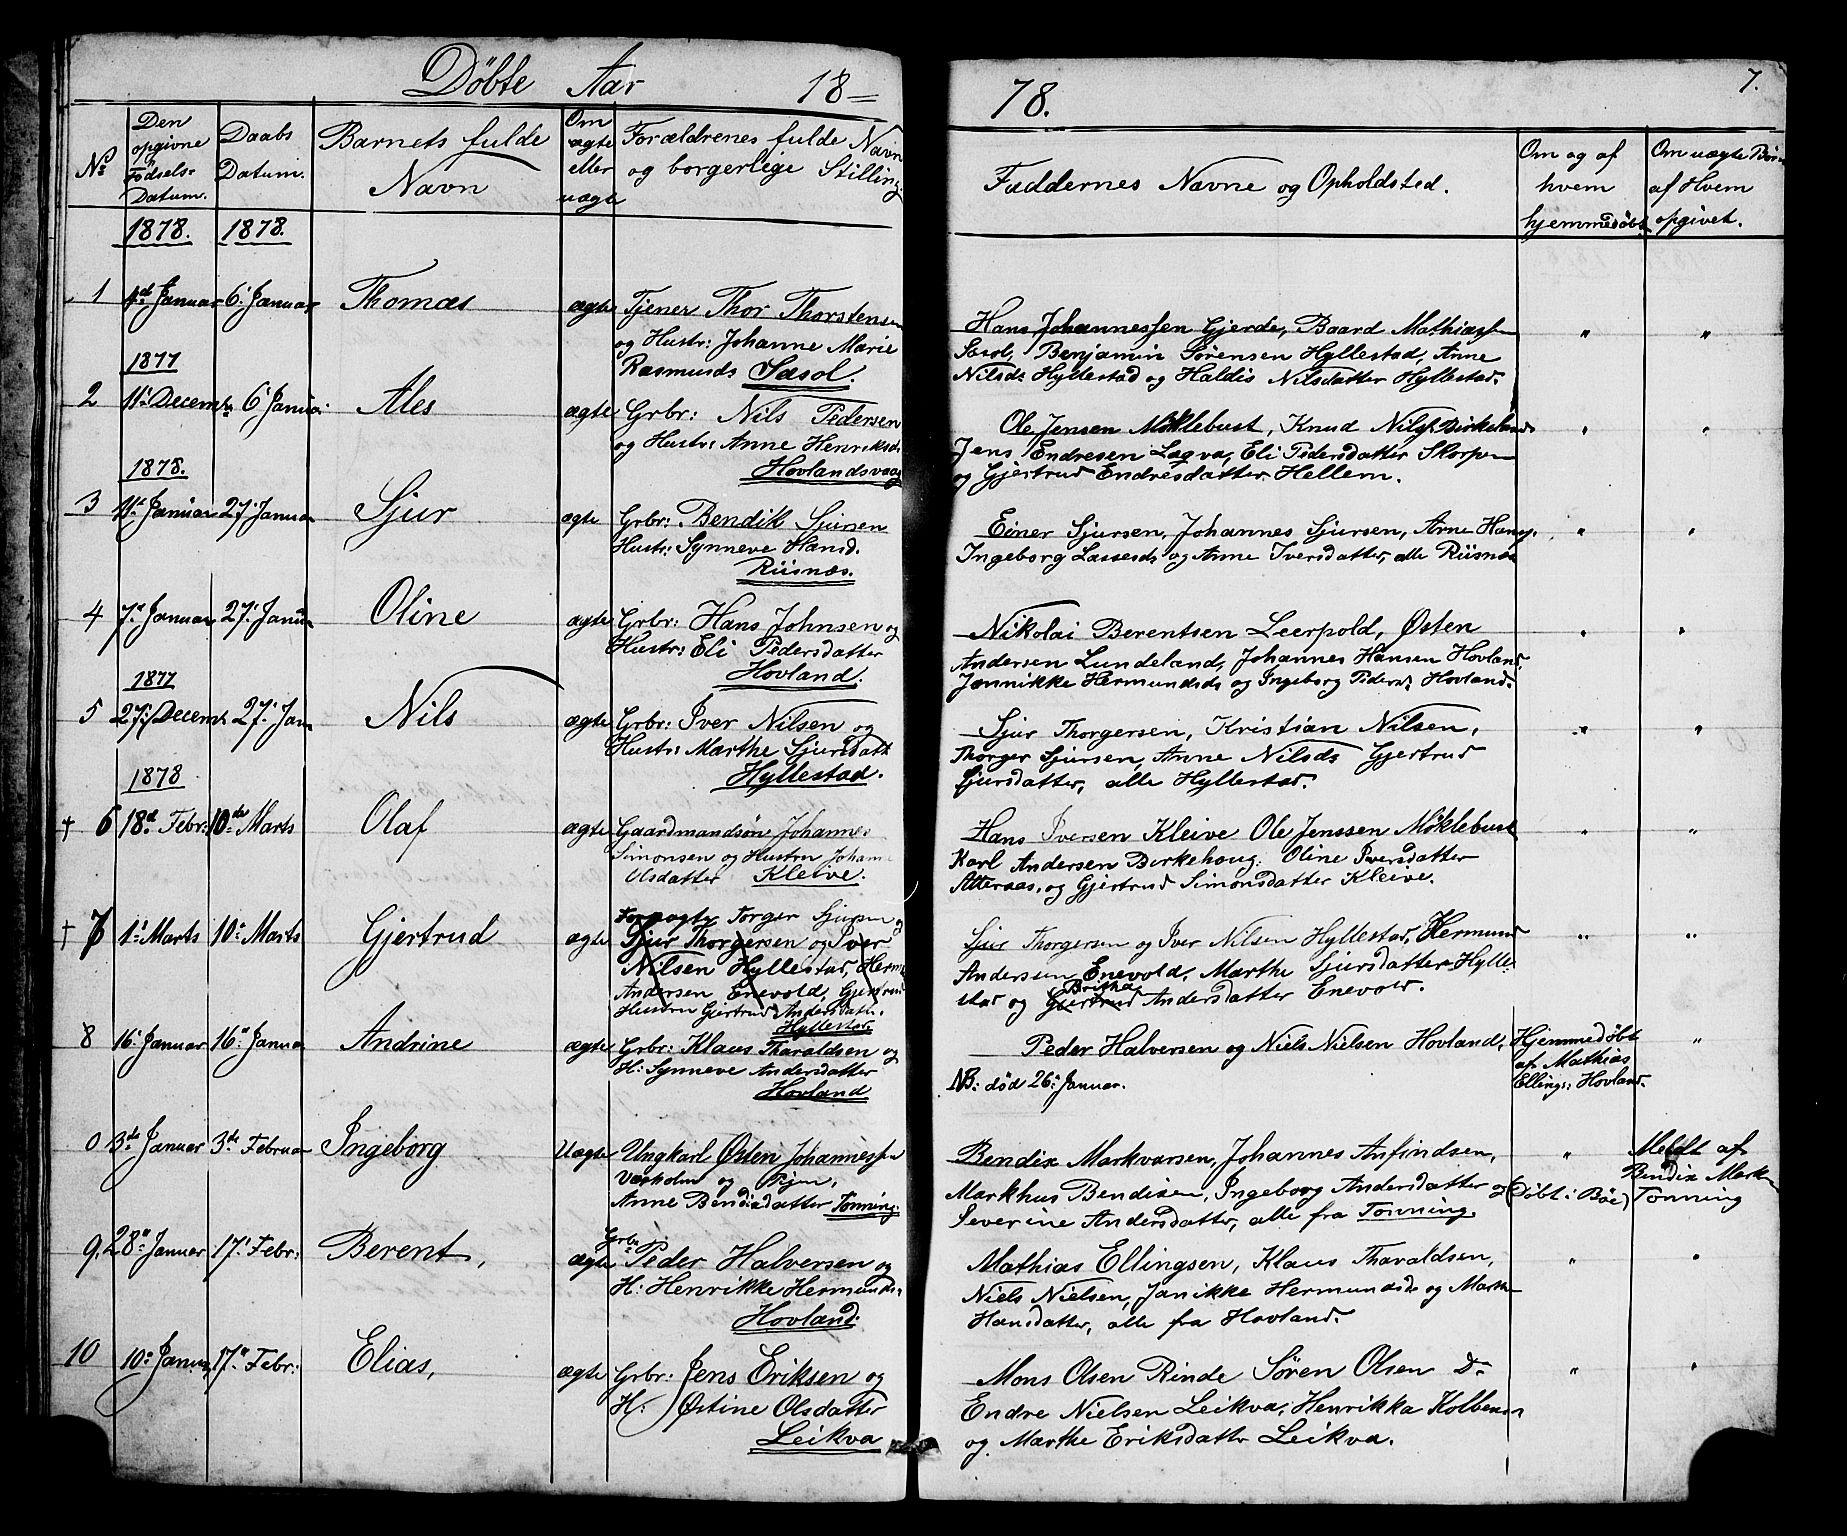 Döbte Aar 18=
78.
7.
No
Den opgivne Födsels-Datum.
Daabs Datum.
Barnets fulde Navn
Om ægte eller uægte
Forældrenes fulde Navn og borgerlige Stilling
Faddernes Navne og Opholdsted.
Om og af hvem hjemmedøbt
Om uægte Børn af Hvem opgivet.
1878. 1878.
1 4d Januar 6: Januar Thomas ægte Tjener Thor Thorstensen
og Hustr: Johanne Marie
Rasmusds Sæsol.
Hans Johannessen Gjerde, Baard Mathiassen
Sæsol, Benjamin Sørensen Hyllestad, Anne
Nilsds Hyllestad og Haldis Nilsdatter Hyllestad. " "
1877
2 11: Decemb 6 Januar Ales ægte Grbr: Nils Pedersen
og Hustr: Anne Henriksd
Hovlandsvaag
Ole Jensen Møklebust, Knud Nilss. Birkeland
Jens Endresen Lægva, Eli Pedersdatter Skorpen
og Gjertrud Endresdatter Hellem. " "
1878.
3 11t Januar 27: Januar Sjur ægte Grbr: Bendik Sjursen
Hustr: Synneve Hansd.
Riisnæs.
Einer Sjursen, Johannes Sjursen, Arne Hansen,
Ingeborg Lassesds og Anne Iversdatter, alle Riisnæs " "
4 7: Januar 27: Januar Oline ægte Grbr: Hans Johnsen og
Hustr: Eli Pedersdatter
Hovland.
Nikolai Berentsen Leerpold, Østen
Andersen Lundeland, Johannes Hansen Hovland,
Jannikke Hermundsds og Ingeborg Pedersd. Hovland. " "
1877
5 27: Decemb 27: Jan Nils ægte Grbr: Iver Nilsen og
Hustr: Marthe Sjursdatt
Hyllestad.
Sjur Thorgersen, Kristian Nilsen,
Thorger Sjursen, Anne Nilsds Gjertrud
Sjursdatter, alle Hyllestad. " "
1878
† 6 18d Febr: 10de Marts Olaf ægte Gaardmandsøn Johannes
Simonsen og Hustru Johanne
Olsdatter Kleive.
Hans Iversen Kleive Ole Jenssen Møklebust
Karl Andersen Birkehoug. Oline Iversdatter
Atteraas, og Gjertrud Simonsdatter Kleive. " "
† 7 1: Marts 10: Marts Gjertrud ægte Forpagter Torger Sjursen og
Sjur Thorgersen og Iver
Nilsen Hyllestad, Herm
Andersen Enevold, Gjertrud
Hustru Gjertrud Andersdatt.
Hyllestad.
Sjur Thorgersen og Iver Nilsen Hyllestad, Hermund
Andersen Enevold, Marthe Sjursdatter Hylle-
stad og Gjertrud Britha Andersdatter Enevold. " "
8 16: Januar 16: Januar Andrine ægte Grbr: Klaus Tharaldsen og
H: Synneve Andersdatter
Hovland
Peder Halversen og Niels Nielsen Hovland,
NB: død 26: Januar.
Hjemmedøbt
af Mathias
Ellings: Hovland. "
0 3de Januar 3de Februar Ingeborg Uægte Ungkarl Østen Johannessen
Værholm og Pigen,
Anne Bendixdatter Tønning.
Bendix Markvarsen, Johannes Anfindsen,
Markhus Bendixen, Ingeborg Andersdatter og
Severine Andersdatter, alle fra Tønning. "
(Døbt i Bøe)
Meldt af
Bendix Mark
Tønning
9. 28: Januar 17: Febr: Berent, ægte Grbr Peder Halversen og
H: Henrikke Hermunds:
Hovland.
Mathias Ellingsen, Klaus Tharaldsen,
Niels Nielsen, Janikke Hermundsds og Marthe
Hansdatter, alle fra Hovland. " "
10 10: Januar 17: Febr: Elias, ægte Grbr: Jens Eriksen og
H: Østine Olsdatter
Leikva
Mons Olsen Rinde Søren Olsen Do
Endre Nielsen Leikva, Henrikka Kolbens
og Marthe Eriksdattr Leikva. " "